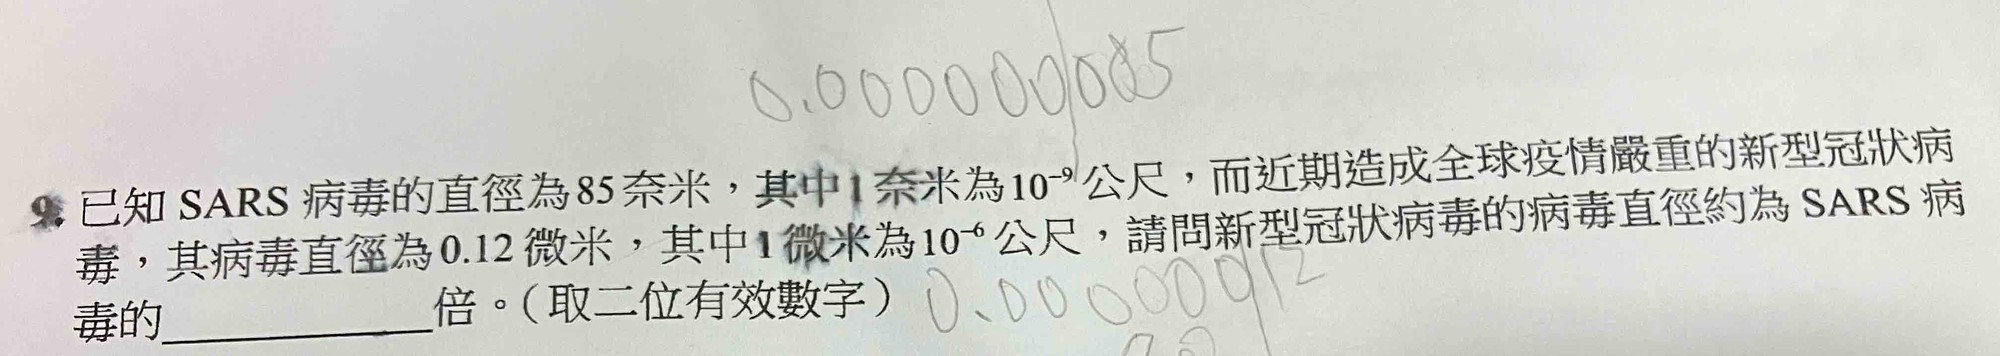 0.000000085
9. 已知 SARS 病毒的直徑為85奈米,其中1奈米為10⁻⁹公尺,而近期造成全球疫情嚴重的新型冠狀病
毒,其病毒直徑為0.12微米,其中1微米為10⁻⁶公尺,請問新型冠狀病毒的病毒直徑約為 SARS 病
毒的__________倍。(取二位有效數字)
0.00000012